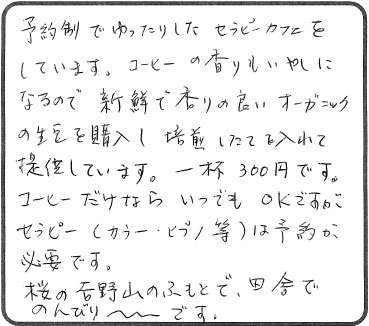 予約制でゆったりした セラピーカフェを
しています。コーヒーの香りもいやしに
なるので 新鮮で香りの良い オーガニック
の生豆を購入し 焙煎したてを入れて
提供しています。一杯 300円です。
コーヒーだけなら いつでも OKですが
セラピー(カラー・ヒプノ等)は予約が
必要です。
桜の吉野山のふもとで、田舎で
のんびり〜〜です。